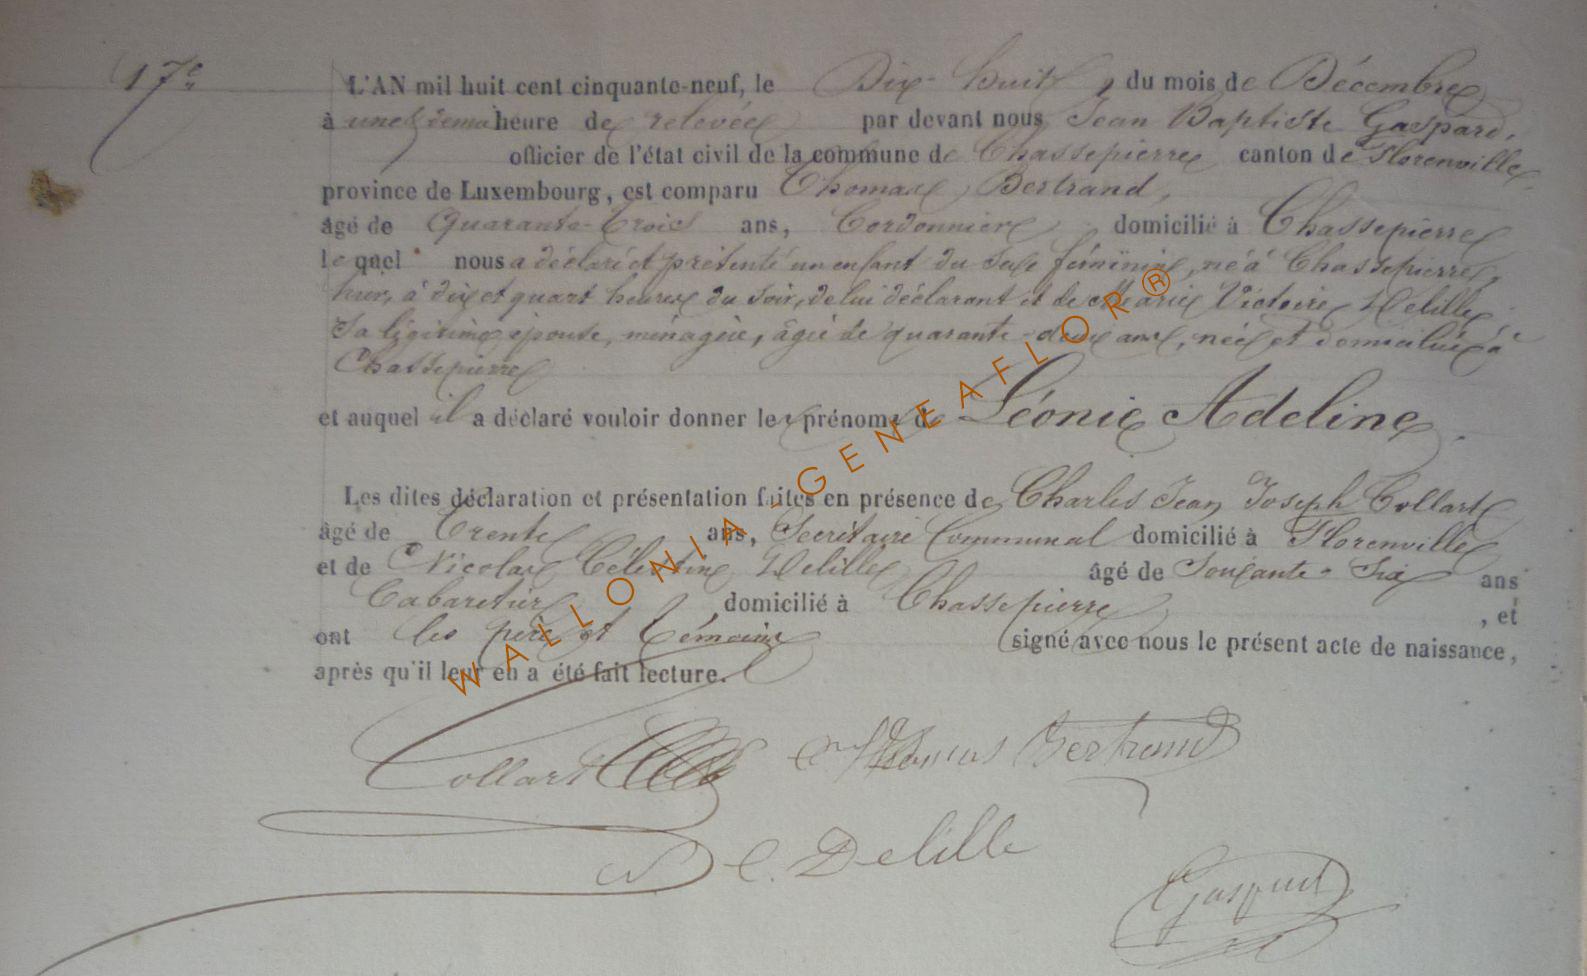 17e
L'AN mil huit cent cinquante-neuf, le Dix-huit, du mois de Décembre
à une & demi heure de relevée par devant nous Jean Baptiste Gaspard,
officier de l'état civil de la commune de Chassepierre canton de Florenville,
province de Luxembourg, est comparu Thomas Bertrand,
âgé de Quarante-trois ans, Cordonnier domicilié à Chassepierre
lequel nous a déclaré et présenté un enfant du sexe féminin, né à Chassepierre,
hier, à dix et quart heures du soir, de lui déclarant et de Marie Victoire Delille,
sa légitime épouse, ménagère, âgée de quarante-deux ans, née et domiciliée à
Chassepierre
et auquel il a déclaré vouloir donner les prénoms de Léonie Adeline.
Les dites déclaration et présentation faites en présence de Charles Jean Joseph Collart
âgé de trente ans, Secrétaire Communal domicilié à Florenville
et de Nicolas Célestin Delille âgé de Soixante-Six ans
Cabaretier, domicilié à Chassepierre, et
ont les père et témoins signé avec nous le présent acte de naissance,
après qu'il leur en a été fait lecture.
Collart Thomas Bertrand
N C. Delille
Gaspard
WALLONIA-GENEAFLOR®